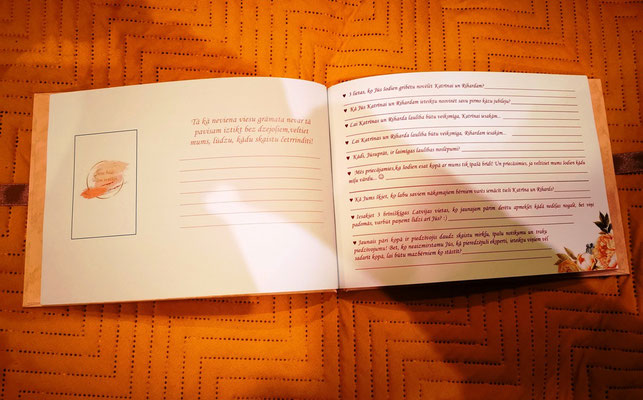 Tā kā neviena viesu grāmata nevar tā
pavisam iztikt bez dzejoļiem, veltiet
mums, lūdzu, kādu skaistu četrrindi!
♥ 3 lietas, ko Jūs šodien gribētu novēlēt Katrīnai un Rihardam?
♥ Kā Jūs Katrīnai un Rihardam ieteiktu nosvinēt savu pirmo kāzu jubileju?
♥ Lai Katrīnas un Riharda laulība būtu veiksmīga, Katrīnai iesakām...
♥ Lai Katrīnas un Riharda laulība būtu veiksmīga, Rihardam iesakām...
♥ Kāds, Jūsuprāt, ir laimīgas laulības noslēpums?
♥ Mēs priecājamies, ka šodien esat kopā ar mums tik īpašā brīdī! Un priecāsimies, ja veltīsiet mums šodien kādu
mīļu vārdu... ☺
♥ Kā Jums šķiet, ko labu saviem nākamajiem bērniem varēs iemācīt tieši Katrīna un Rihards?
♥ Iesakiet 3 brīnišķīgas Latvijas vietas, ko jaunajam pārim derētu apmeklēt kādā nedēļas nogalē, bet viņi
padomās, varbūt paņemt līdzi arī Jūs? :)
♥ Jaunais pāri kopā ir piedzīvojis daudz skaistu mirkļu, īpašu notikumu un traku
piedzīvojumu! Bet, ko neaizmirstamu Jūs, kā pieredzējuši eksperti, ieteiktu viņiem vēl
sadarīt kopā, lai būtu mazbērniem ko stāstīt?